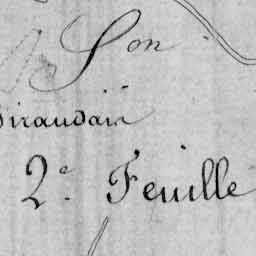 Son
Giraudais
2e Feuille